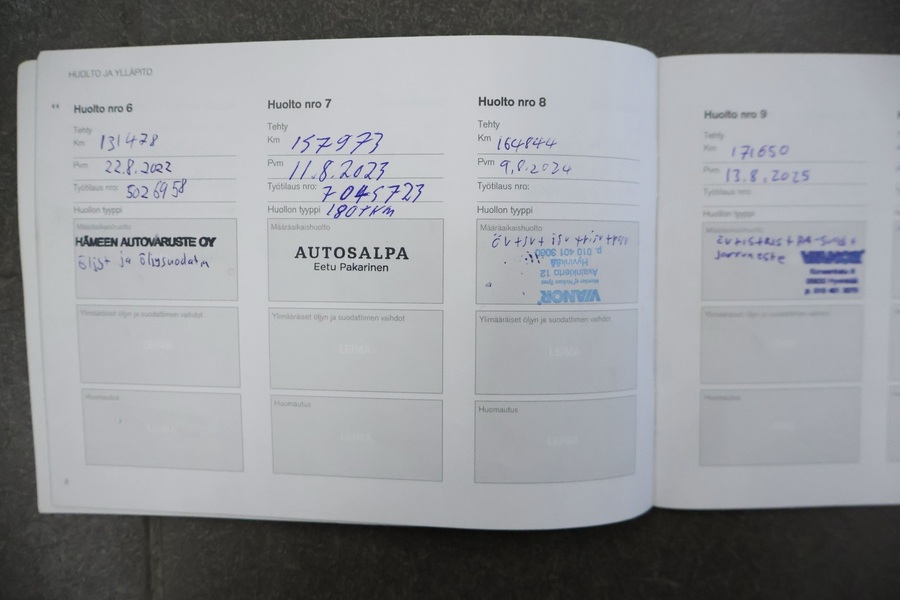 HUOLTO JA YLLÄPITO
Huolto nro 6
Tehty
Km 131478
Pvm 22.8.2022
Työtilaus nro: 5026958
Huollon tyyppi
Määräaikaishuolto
HÄMEEN AUTOVARUSTE OY
öljyt ja öljysuodatin
Ylimääräiset öljyn ja suodattimen vaihdot
LEIMA
Huomautus
LEIMA
8
Huolto nro 7
Tehty
Km 157973
Pvm 11.8.2023
Työtilaus nro: 7045723
Huollon tyyppi 180TKM
Määräaikaishuolto
AUTOSALPA
Eetu Pakarinen
Ylimääräiset öljyn ja suodattimen vaihdot
LEIMA
Huomautus
LEIMA
Huolto nro 8
Tehty
Km 164844
Pvm 9.8.2024
Työtilaus nro:
Huollon tyyppi
Määräaikaishuolto
öv+sv+
VIANOR
Avainkierto 12
Hyvinkää
p. 010 401 3060
Ylimääräiset öljyn ja suodattimen vaihdot
LEIMA
Huomautus
LEIMA
Huolto nro 9
Tehty
Km 171650
Pvm 13.8.2025
Työtilaus nro:
Huollon tyyppi
Määräaikaishuolto
jarruneste
VIANOR
Hyvinkää
Ylimääräiset öljyn ja suodattimen vaihdot
Huomautus